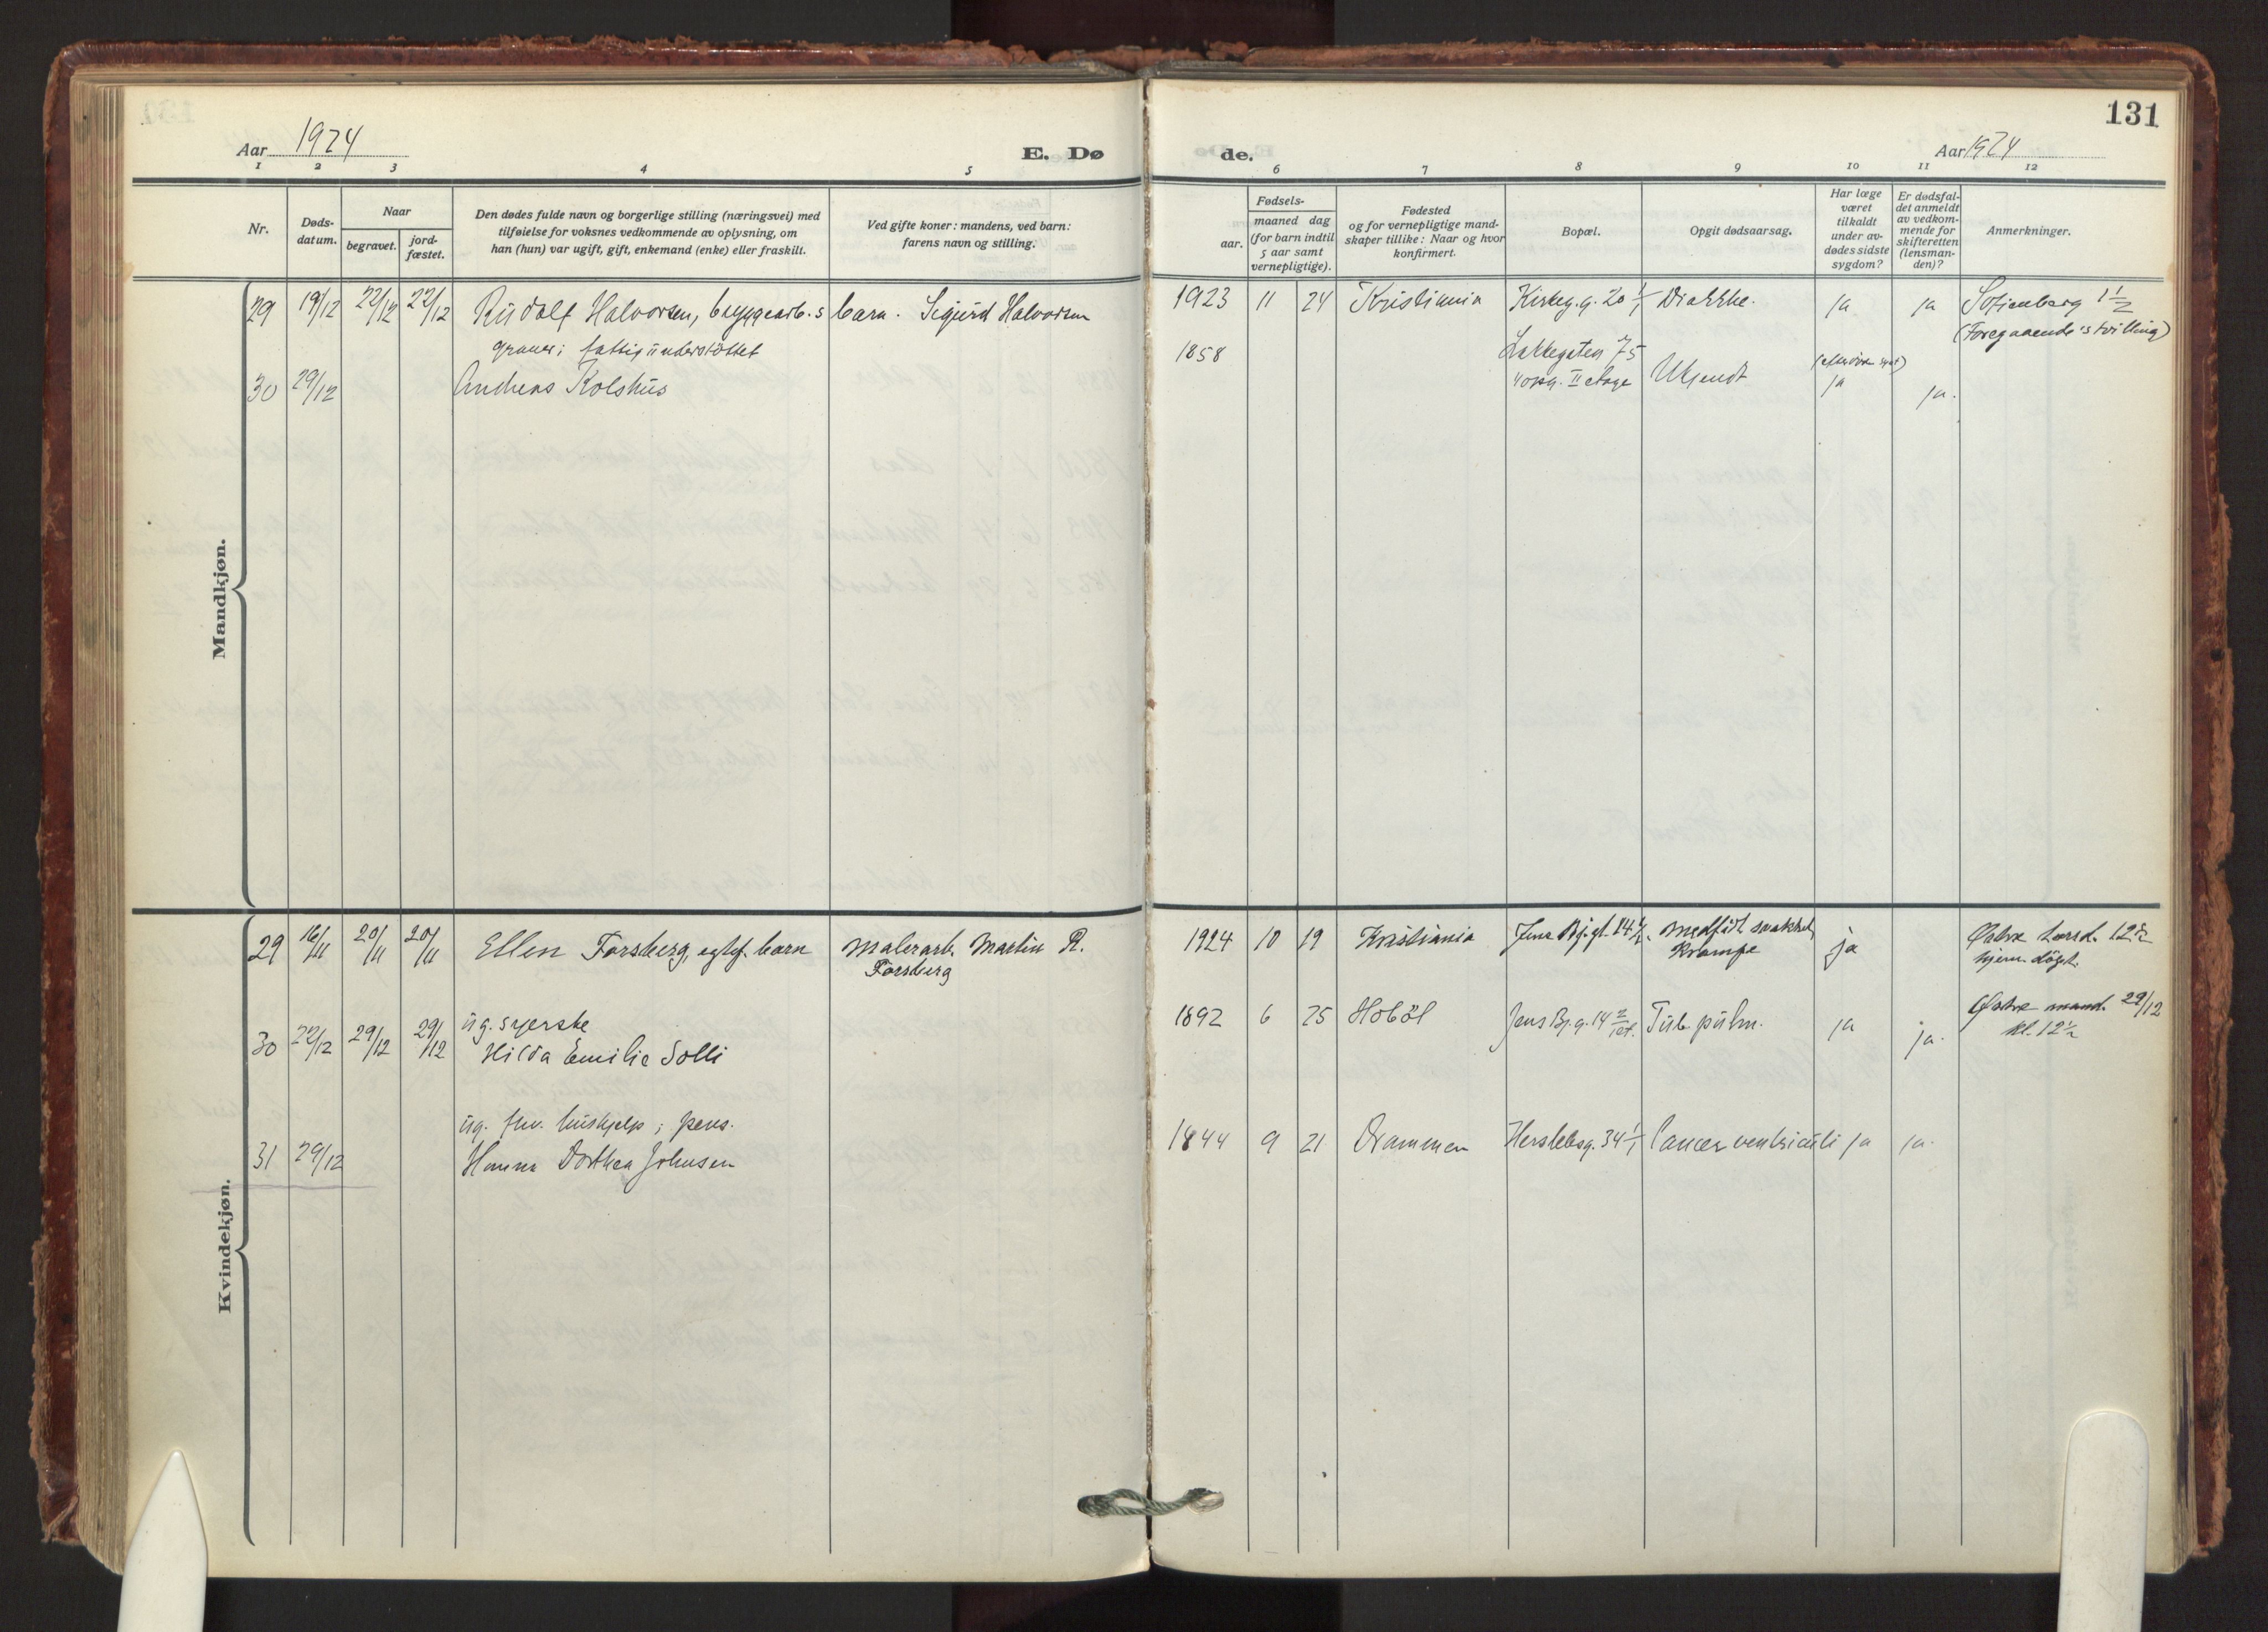 131
Aar 1924
E. Dø
de.
Aar 1924
1 2 3 4 5
6 7 8 9 10 11 12
Nr.
Døds-
datum.
Naar
begravet.
jord-
fæstet.
Den dødes fulde navn og borgerlige stilling (næringsvei) med
tilføielse for voksnes vedkommende av oplysning, om
han (hun) var ugift, gift, enkemand (enke) eller fraskilt.
Ved gifte koner: mandens, ved barn:
farens navn og stilling.
Fødsels-
aar.
maaned dag
(for barn indtil
5 aar samt
vernepligtige).
Fødested
og for vernepligtige mand-
skaper tillike: Naar og hvor
konfirmert.
Bopæl.
Opgit dødsaarsag.
Har læge
været
tilkaldt
under av-
dødes sidste
sygdom?
Er dødsfal-
det anmeldt
av vedkom-
mende for
skifteretten
(lensman-
den)?
Anmerkninger.
Mandkjøn.
29 19/12 22/12 22/12 Rudolf Halvorsen, byggearb.s barn. Sigurd Halvorsen 1923 11 24 Kristiania Kirkeg.g. 20 1/1 Diarrhe. ja ja Sofienberg 1 1/2
(Foregaaende's tvilling)
graver; fattigunderstöttet
30 29/12 Andreas Kolshus 1858 Lakkegaten 75
4 opg. II etage Ukjendt ja ja.
Kvindekjøn.
29 16/11 20/11 20/11 Ellen Forsberg, egtef. barn Malerarb. Martin R.
Forsberg
1924 10 19 Kristiania Jens Bj.gt. 14 Medfødt svakhet,
Krampe ja Østre torsd. 12 1/2
hjem. døpt.
ug. syerske
30 22/12 29/12 29/12 Hilda Emilie Solli 1892 6 25 Hoböl Jens Bj.g. 14 Tub. pulm. ja ja. Østre mand. 29/12
kl. 12 1/2
ug. fhv. hushjelp; pens.
31 29/12 Hanna Dorthea Johnsen 1844 9 21 Drammen Herslebsg. 34 1/1 Cancer ventriculi ja ja.